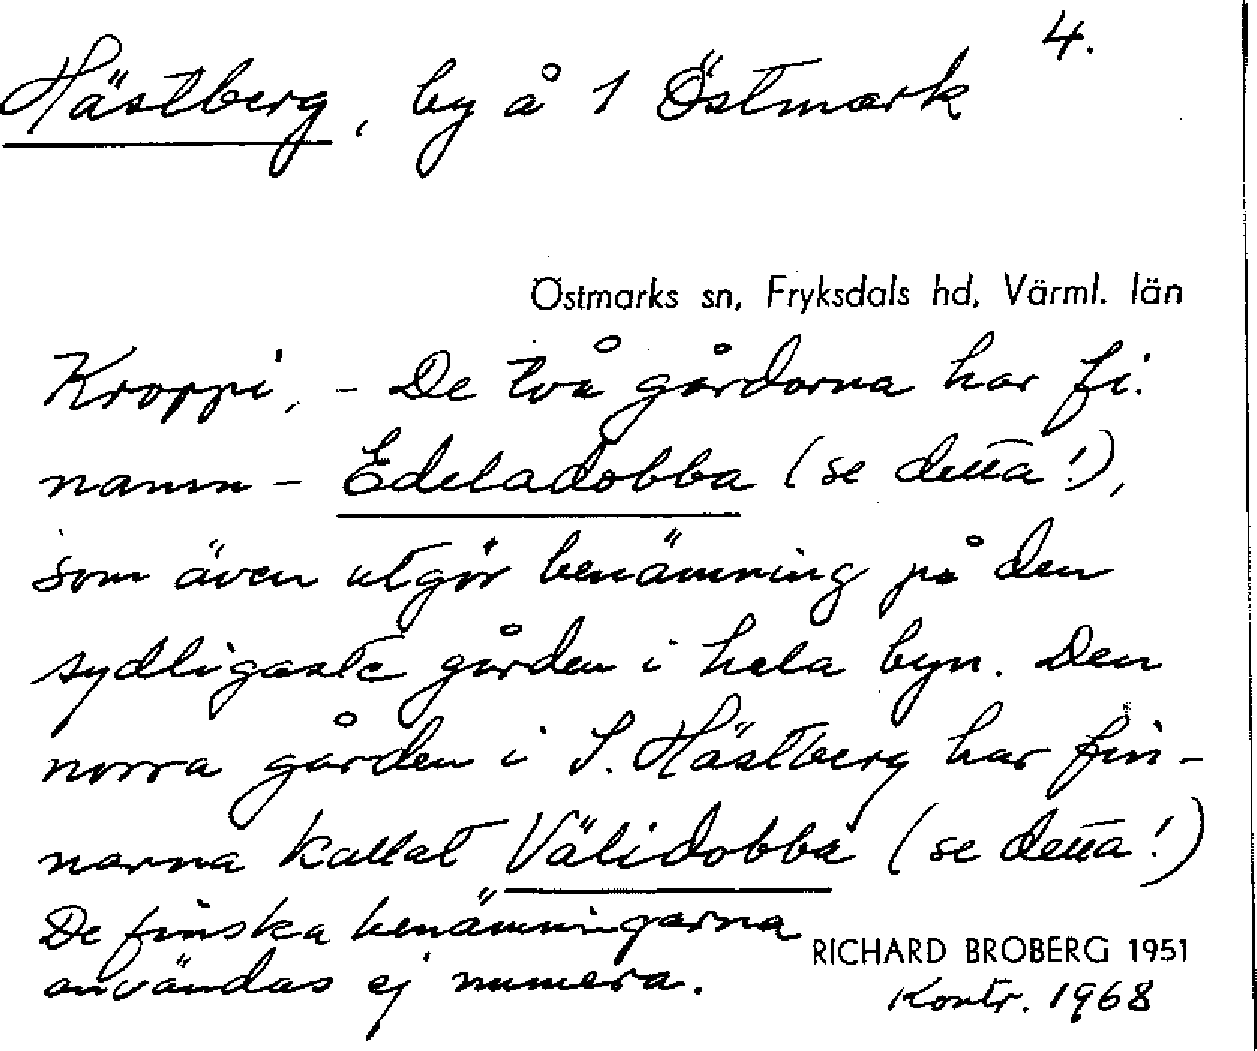 4.
Hästberg, by å 1 Östmark
Östmarks sn, Fryksdals hd, Värml. län
Kroppi, - De två gårdarna har fi.
namn - Edeladobba (se detta!),
som även utgör benämning på den
sydligaste gården i hela byn. Den
norra gården i S. Hästberg har fin-
narna kallat Välidobba (se detta!)
De finska benämningarna
användas ej numera.
RICHARD BROBERG 1951
Kontr. 1968